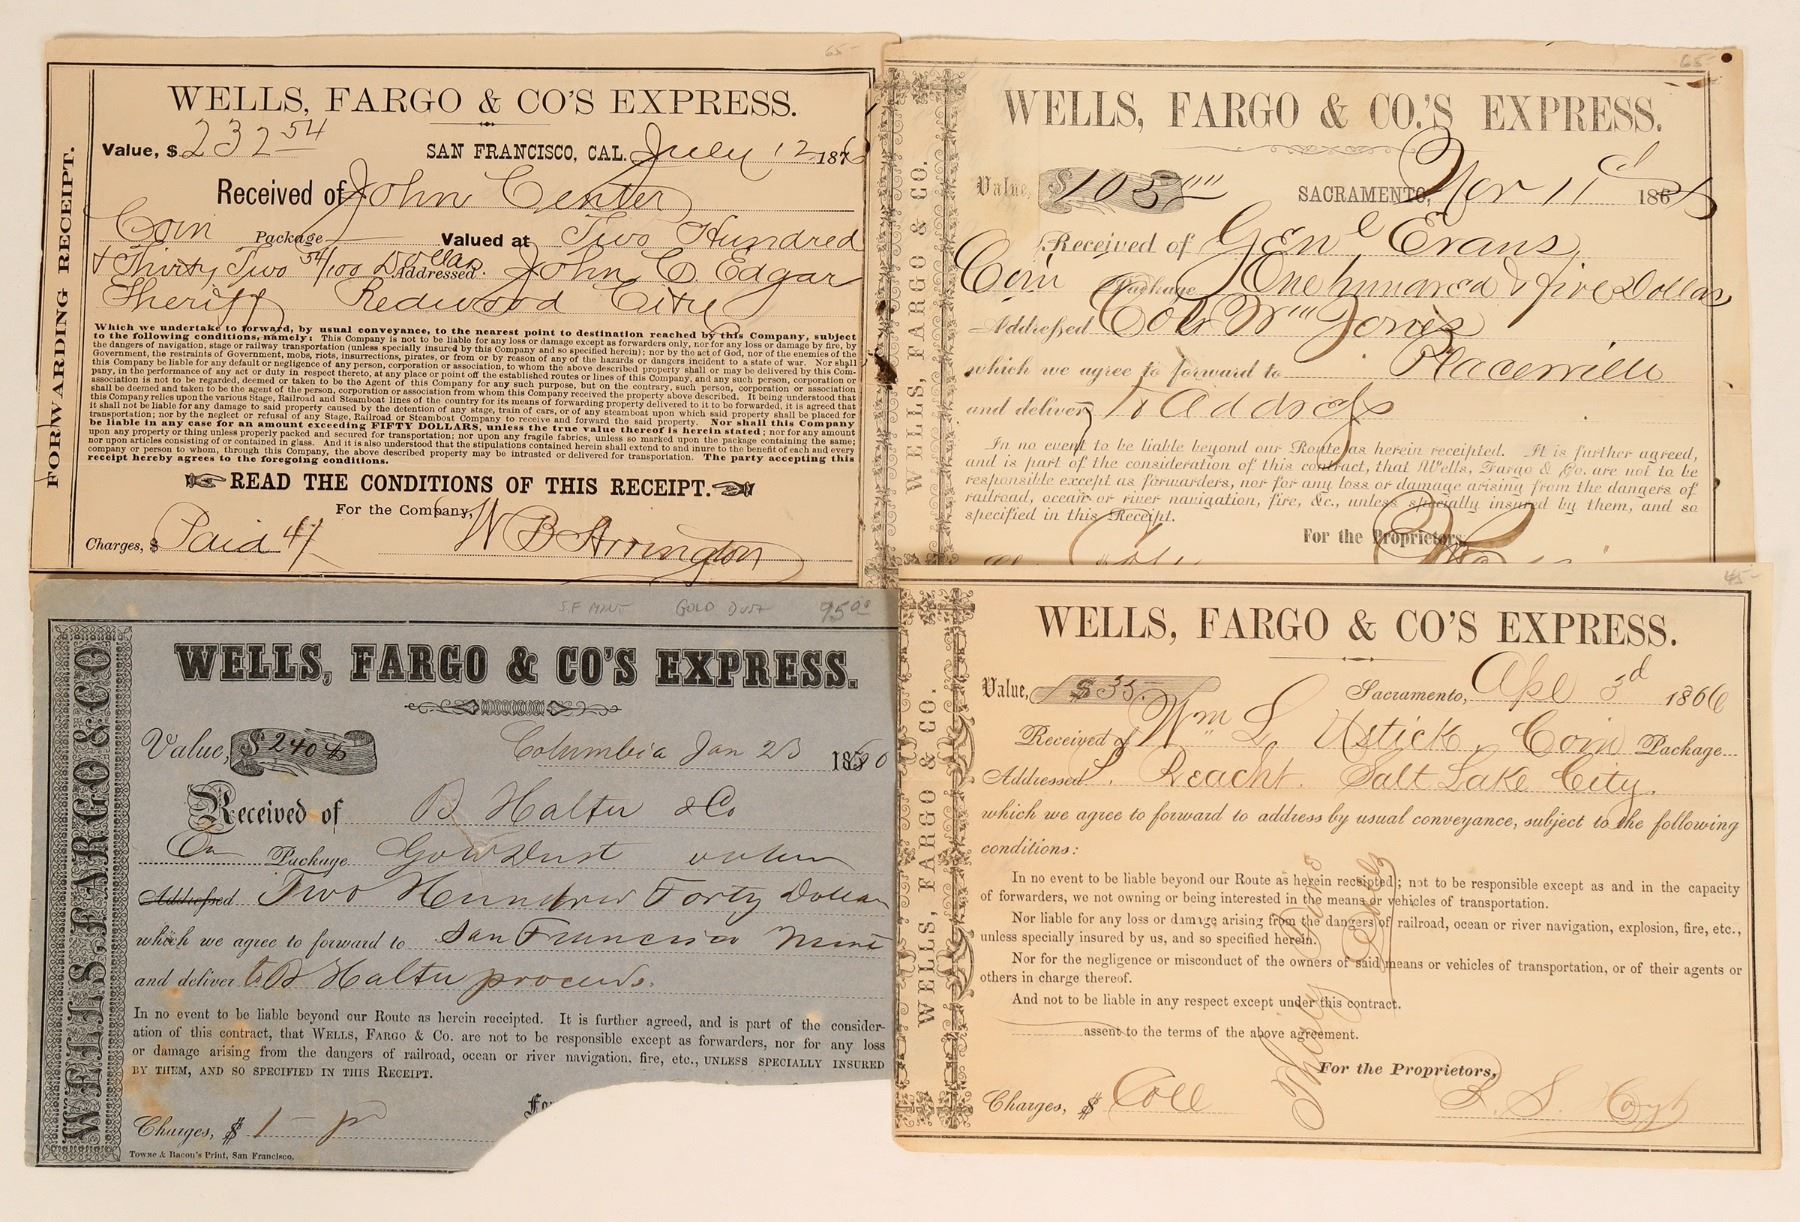 65-
WELLS, FARGO & CO'S EXPRESS.
FORWARDING RECEIPT.
Value, $ 232 54 SAN FRANCISCO, CAL. July 12 187
Received of John Center
Coin Package Valued at Two Hundred
& Thirty Two 54/100 Dollars Addressed. John C. Edgar
Sheriff Redwood City
Which we undertake to forward, by usual conveyance, to the nearest point to destination reached by this Company, subject
to the following conditions, namely: This Company is not to be liable for any loss or damage except as forwarders only, nor for any loss or damage by fire, by
the dangers of navigation, stage or railway transportation (unless specially insured by this Company and so specified herein); nor by the act of God, nor of the enemies of the
Government, the restraints of Government, mobs, riots, insurrections, pirates, or from or by reason of any of the hazards or dangers incident to a state of war. Nor shall
this Company be liable for any default or negligence of any person, corporation or association, to whom the above described property shall or may be delivered by this Com-
pany, in the performance of any act or duty in respect thereto, at any place or point off the established routes or lines of this Company, and any such person, corporation or
association is not to be regarded, deemed or taken to be the Agent of this Company for any such purpose, but on the contrary, such person, corporation or association
shall be deemed and taken to be the agent of the person, corporation or association from whom this Company received the property above described. It being understood that
this Company relies upon the various Stage, Railroad and Steamboat lines of the country for its means of forwarding property delivered to it to be forwarded, it is agreed that
it shall not be liable for any damage to said property caused by the detention of any stage, train of cars, or of any steamboat upon which said property shall be placed for
transportation; nor by the neglect or refusal of any Stage, Railroad or Steamboat Company to receive and forward the said property. Nor shall this Company
be liable in any case for an amount exceeding FIFTY DOLLARS, unless the true value thereof is herein stated; nor for any amount
upon any property or thing unless properly packed and secured for transportation; nor upon any fragile fabrics, unless so marked upon the package containing the same;
nor upon articles consisting of or contained in glass. And it is also understood that the stipulations contained herein shall extend to and inure to the benefit of each and every
company or person to whom, through this Company, the above described property may be intrusted or delivered for transportation. The party accepting this
receipt hereby agrees to the foregoing conditions.
READ THE CONDITIONS OF THIS RECEIPT.
For the Company,
Charges, $ Paid W B Arrington
65-
WELLS, FARGO & CO.'S EXPRESS.
WELLS, FARGO & CO.
Value, $ 105 SACRAMENTO, Nov 11 186
Received of Gen'l Evans
Coin Package One hundred & five Dollars
Addressed Wm Jones
which we agree to forward to Placerville
and deliver to address
In no event to be liable beyond our Route as herein receipted. It is further agreed,
and is part of the consideration of this contract, that Wells, Fargo & Co. are not to be
responsible except as forwarders, nor for any loss or damage arising from the dangers of
railroad, ocean or river navigation, fire, &c., unless specially insured by them, and so
specified in this Receipt.
For the Proprietors,
S.F MINT GOLD DUST 95.00
WELLS, FARGO & CO'S EXPRESS.
WELLS, FARGO & CO
Value, $ 240 Columbia Jan 23 18
Received of B Halter & Co
Package Gold Dust
Addressed Two Hundred Forty Dollars
which we agree to forward to San Francisco Mint
and deliver to B Halter proceeds.
In no event to be liable beyond our Route as herein receipted. It is further agreed, and is part of the consider-
ation of this contract, that WELLS, FARGO & Co. are not to be responsible except as forwarders, nor for any loss
or damage arising from the dangers of railroad, ocean or river navigation, fire, etc., UNLESS SPECIALLY INSURED
BY THEM, AND SO SPECIFIED IN THIS RECEIPT.
Fo
Charges, $ 1
Towne & Bacon's Print, San Francisco.
45-
WELLS, FARGO & CO'S EXPRESS.
WELLS, FARGO & CO.
Value, $35 Sacramento, Apl 3d 1866
Received of Wm L Ustick, Coin Package
Addressed Reacht. Salt Lake City.
which we agree to forward to address by usual conveyance, subject to the following
conditions:
In no event to be liable beyond our Route as herein receipted; not to be responsible except as and in the capacity
of forwarders, we not owning or being interested in the means or vehicles of transportation.
Nor liable for any loss or damage arising from the dangers of railroad, ocean or river navigation, explosion, fire, etc.,
unless specially insured by us, and so specified herein.
Nor for the negligence or misconduct of the owners of said means or vehicles of transportation, or of their agents or
others in charge thereof.
And not to be liable in any respect except under this contract.
assent to the terms of the above agreement.
Thirty Five
For the Proprietors,
Charges, $ Coll S. Hoyt